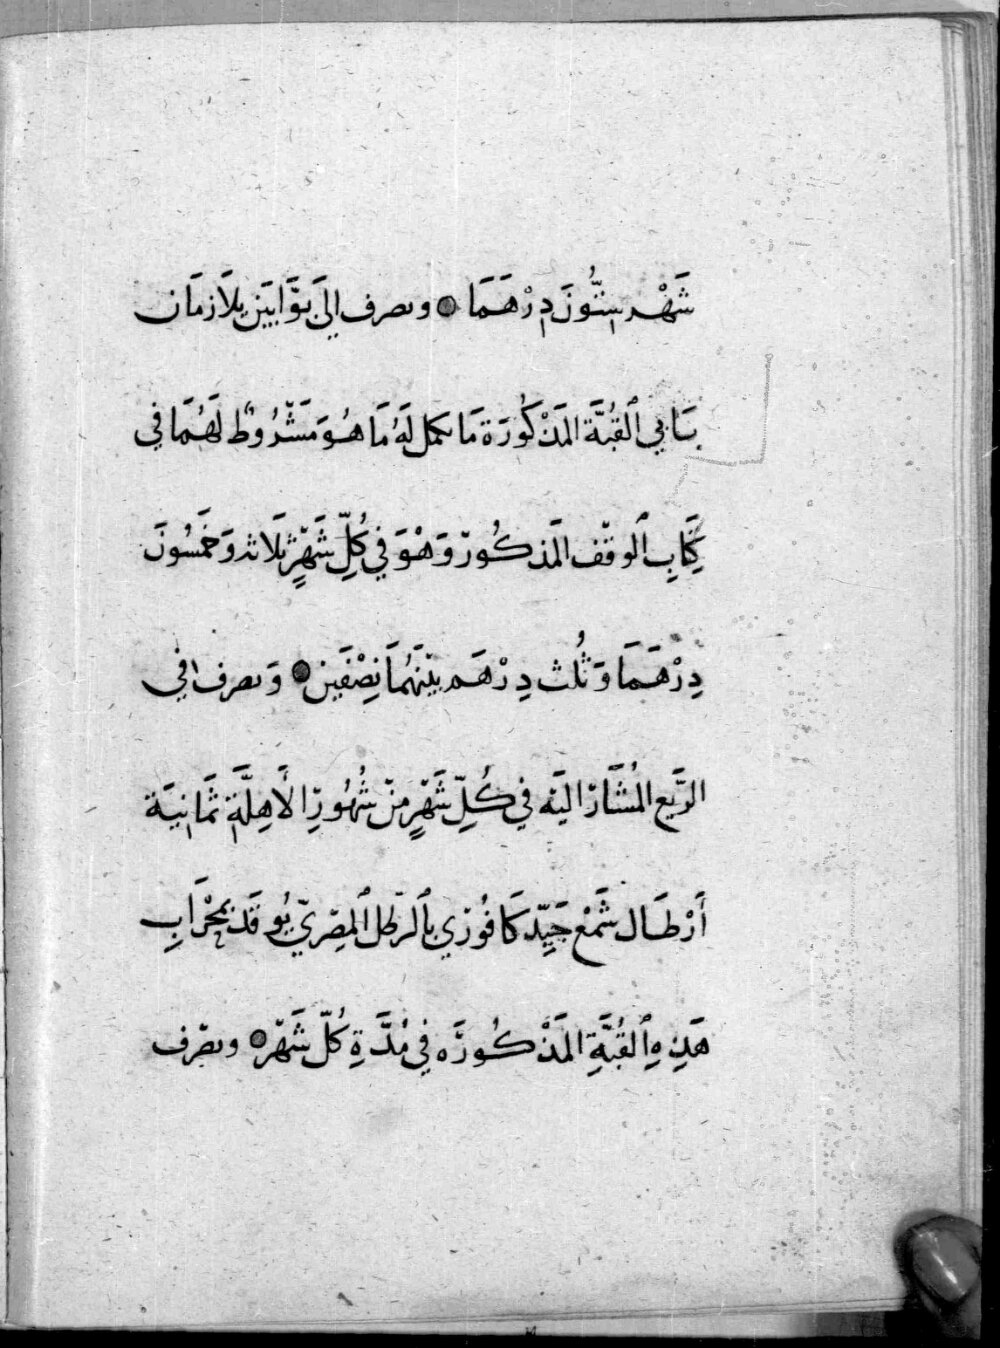 شَهْر سِتُّونَ دِرْهَمَا ويصرف الَى بَوَّابَيْن يلَازمَان
بَابي ٱلقُبَّةَ المَذْكُورَة مَا يكمل لَهُ مَا هُوَ مَشْرُوطٌ لَهُمَا في
كِتَابِ ٱلوقْف المَذكُورْ وَهْوَ في كُلِّ شَهْرٍ ثَلَاثه وَخَمْسُونَ
دِرْهَمَا وَثُلُث دِرْهَم بيْنَهُمَا نِصْفَيْن وَيصرف في
الرَّيع المُشَارْ اليْه في كُلِّ شَهْرٍ مِنْ شُهُورْ الأَهِلَّةِ ثَمَانيَة
أَرْطَال شَمْع جَيِّد كَافُوْري بٱلرّطل ٱلمِصْريّ يُوقَد بمحْرَابِ
هَذِهِ ٱلقُبَّةِ المَذْكُورَه في مُدَّةِ كُلّ شَهْر ويصْرف